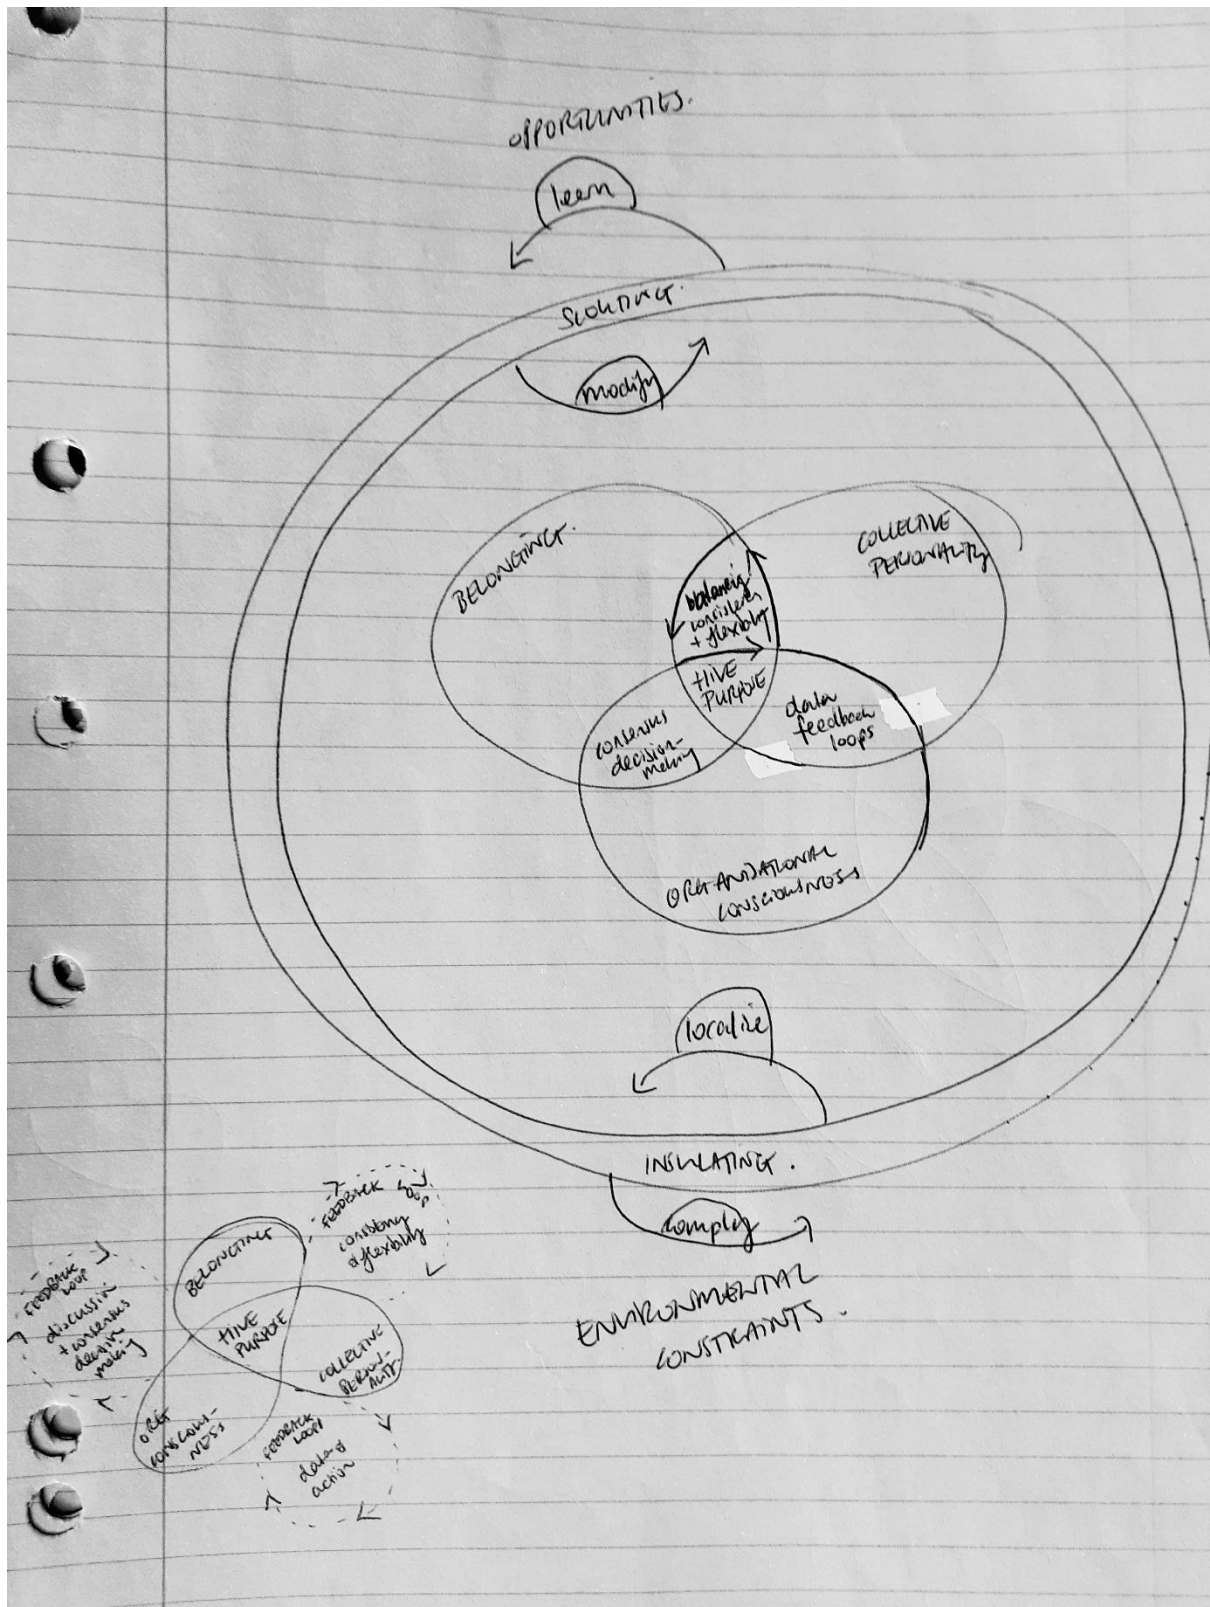 OPPORTUNITIES.
learn
SCOUTING.
modify
BELONGING.
COLLECTIVE
PERSONALITY
balancing
consistency
+ flexibility
HIVE
PURPOSE
data
feedback
loops
consensus
decision-
making
ORGANISATIONAL
CONSCIOUSNESS
localise
INSULATING.
comply
ENVIRONMENTAL
CONSTRAINTS.
FEEDBACK LOOP
consistency
& flexibility
BELONGING
FEEDBACK
LOOP
discussion
+ consensus
decision
making
HIVE
PURPOSE
COLLECTIVE
PERSON-
ALITY.
ORG
CONSCIOUS-
NESS
FEEDBACK
LOOP
data &
action